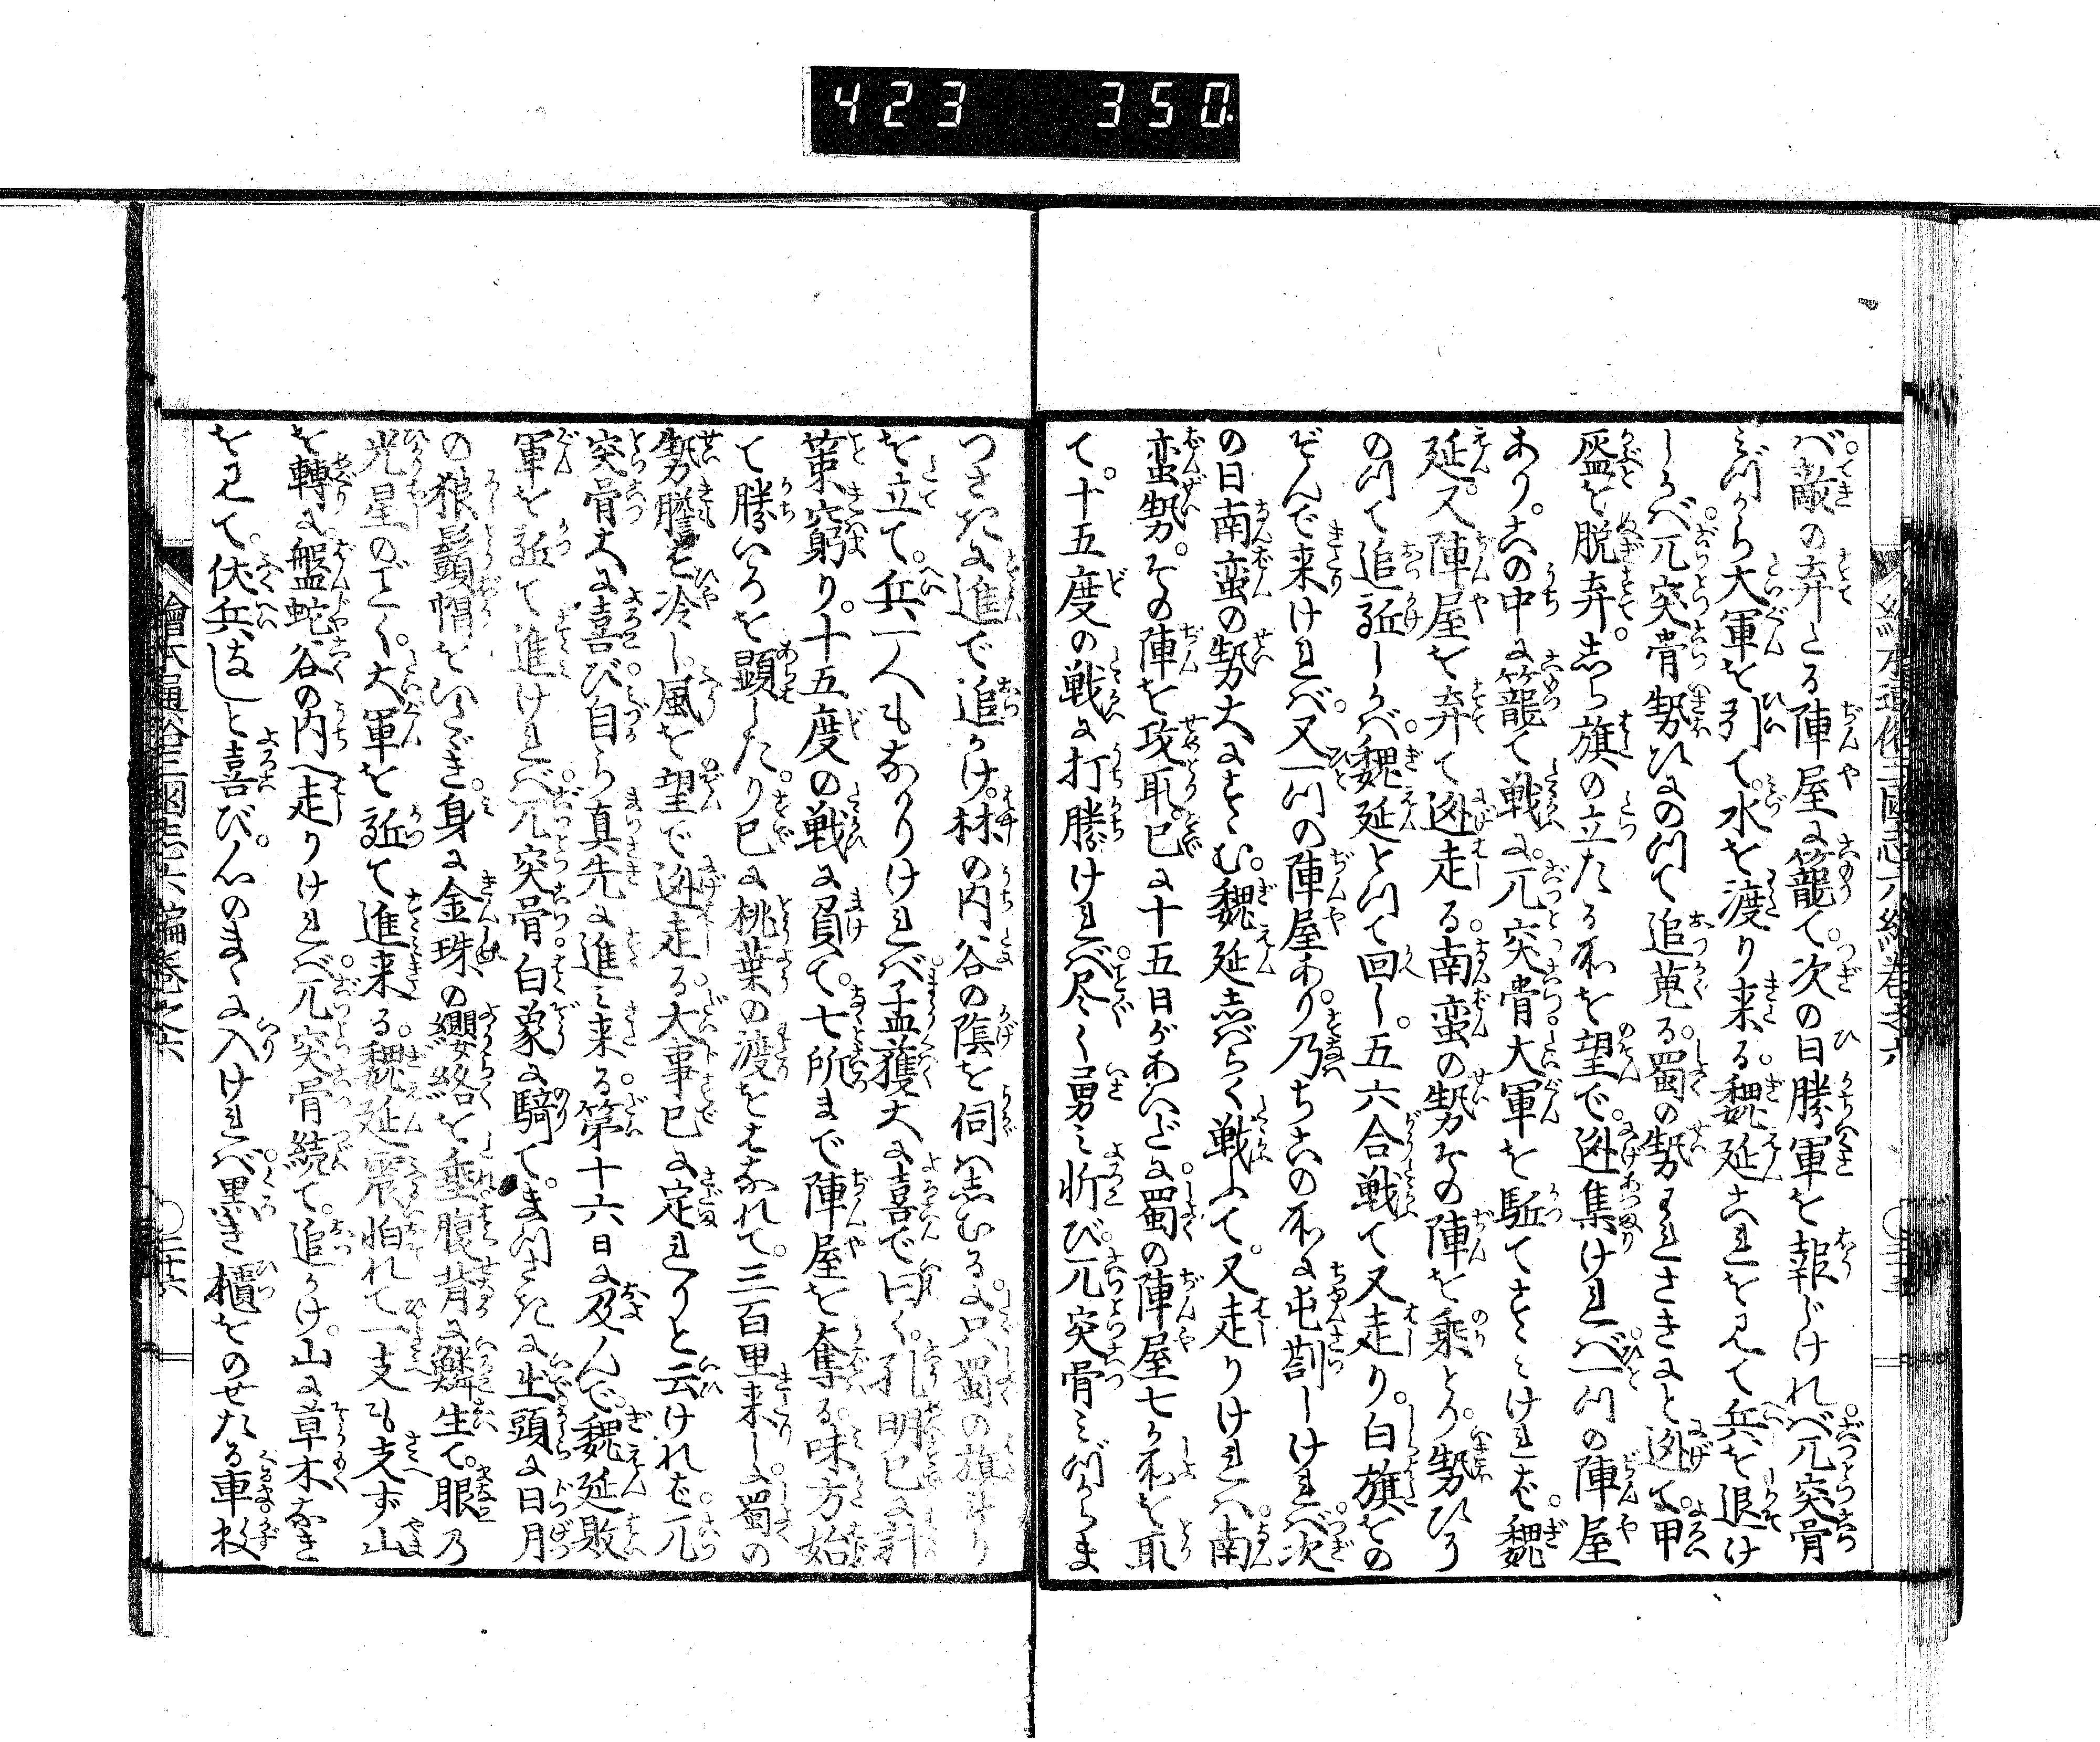 423 350
繪本通俗三國志六編巻之六
ば敵の弃たる陣屋に籠て。次の日勝軍を報じけれバ兀突骨
みづから大軍を引て。水を渡り来る。魏延これを見て兵を退け
しかバ兀突骨勢ひにのつて追蒐る。蜀の勢われさきにと迯て。甲
盔を脱弃。しら旗の立たる所を望で。迯集けれバ一つの陣屋
あり。この中に籠て戦に。兀突骨大軍を駈てすゝみければ。魏
延又陣屋を弃て迯走る。南蛮の勢その陣を乗とり。勢ひに
のつて追駈しかバ。魏延とつて回し。五六合戦て又走り。白旗をの
ぞんで来けれバ。又一つの陣屋あり。乃ちこの所に屯劄しけれバ。次
の日南蛮の勢大にすゝむ。魏延しバらく戦ふて。又走りけれバ。南
蛮勢。その陣を攻取。已に十五日があいだに。蜀の陣屋七ヶ所を取
て。十五度の戦に打勝けれバ。尽く勇み忻び。兀突骨みづからま
つさきに進で追かけ。林の内谷の蔭を伺ハしむるに。只蜀の旗斗り
を立て。兵一人もあらりけれバ。孟獲大に喜で曰く。孔明已に計
策窮り。十五度の戦に負て。七所まで陣屋を奪る。味方始
て勝いろを顕したり。已に桃葉の渡をはなれて。三百里来しに。蜀の
勢膽を冷し風を望で迯走る。大事已に定れりと云ければ。兀
突骨大に喜び。自ら真先に進み来る。第十六日に及んで。魏延敗
軍を駈て進けれバ。兀突骨白象に騎て。まつさきに出。頭に日月
の狼鬚帽をいたゞき。身に金珠の纓絡を垂。腹背に鱗生て。眼乃
光星のごとく。大軍を駈て進来る。魏延震怕れて一支も支ず山
を轉に盤蛇谷の内へ走りけれバ。兀突骨続て。追かけ。山に草木なき
を見て。伏兵なしと喜び。心のまゝに入けれバ。黒き櫃をのせたる車数
繪本通俗三國志六編巻之六